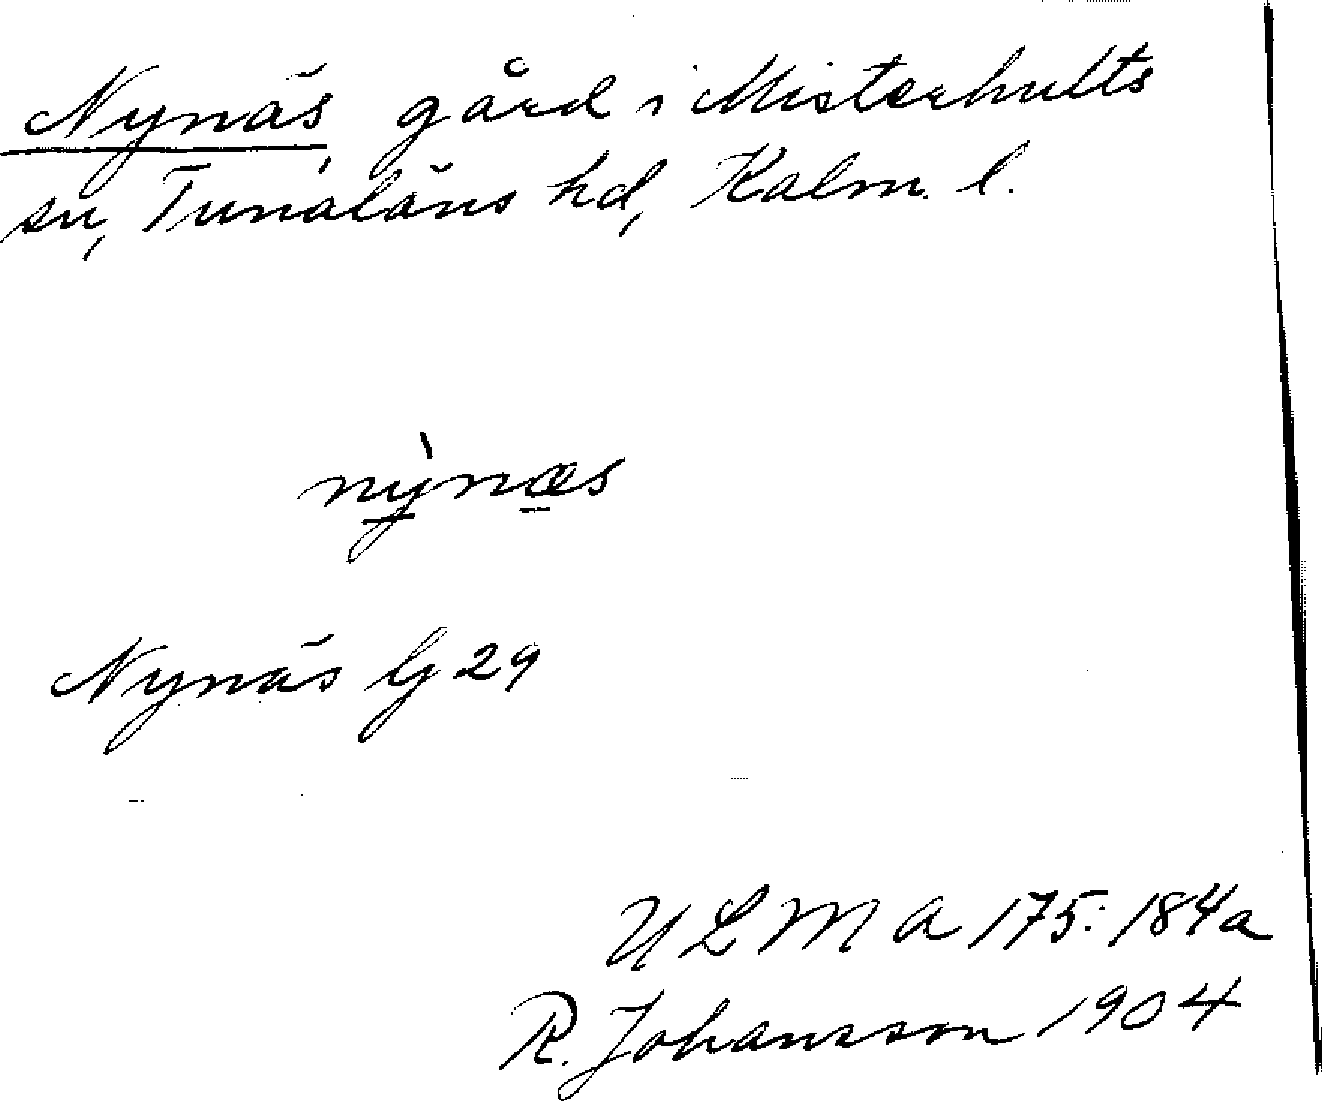 Nynäs gård i Misterhults
sn, Tunaläns hd, Kalm. l.
nỳ̠næ̠s
Nynäs G 29
ULMA 175:184a
R. Johansson 1904